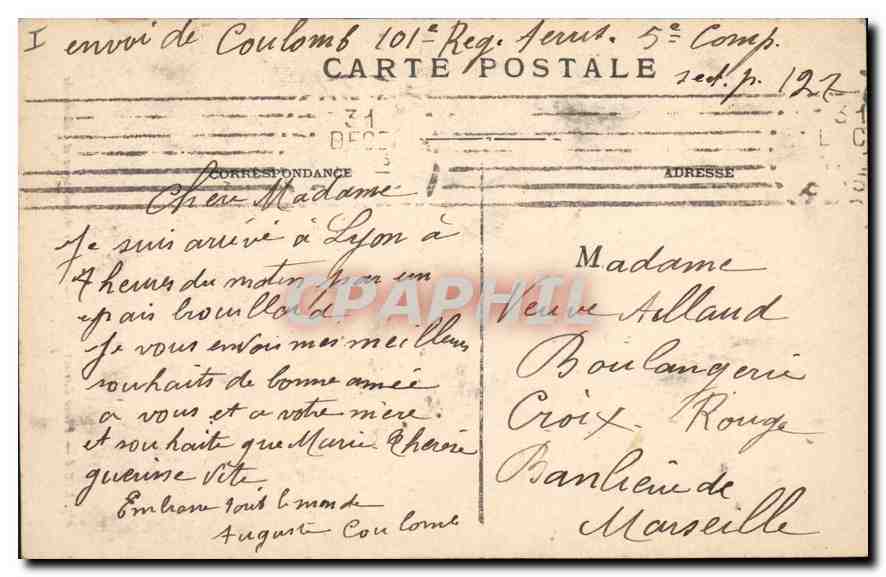 I envoi de Coulomb 101e Reg. Territ. 5e Comp.
CARTE POSTALE
sect. p. 127
31
DEC
31
CORRESPONDANCE
ADRESSE
Chère Madame
Je suis arrivé à Lyon à
4 heures du matin par un
épais brouillard
Je vous envois mes meilleurs
souhaits de bonne année
à vous et a votre mère.
et souhaite que Marie Therese
guerisse vite
Embrasse tout le monde
Auguste Coulomb
Madame
Veuve Aillaud
Boulangerie
Croix-Rouge
Banlieue de
Marseille
CPAPHIL